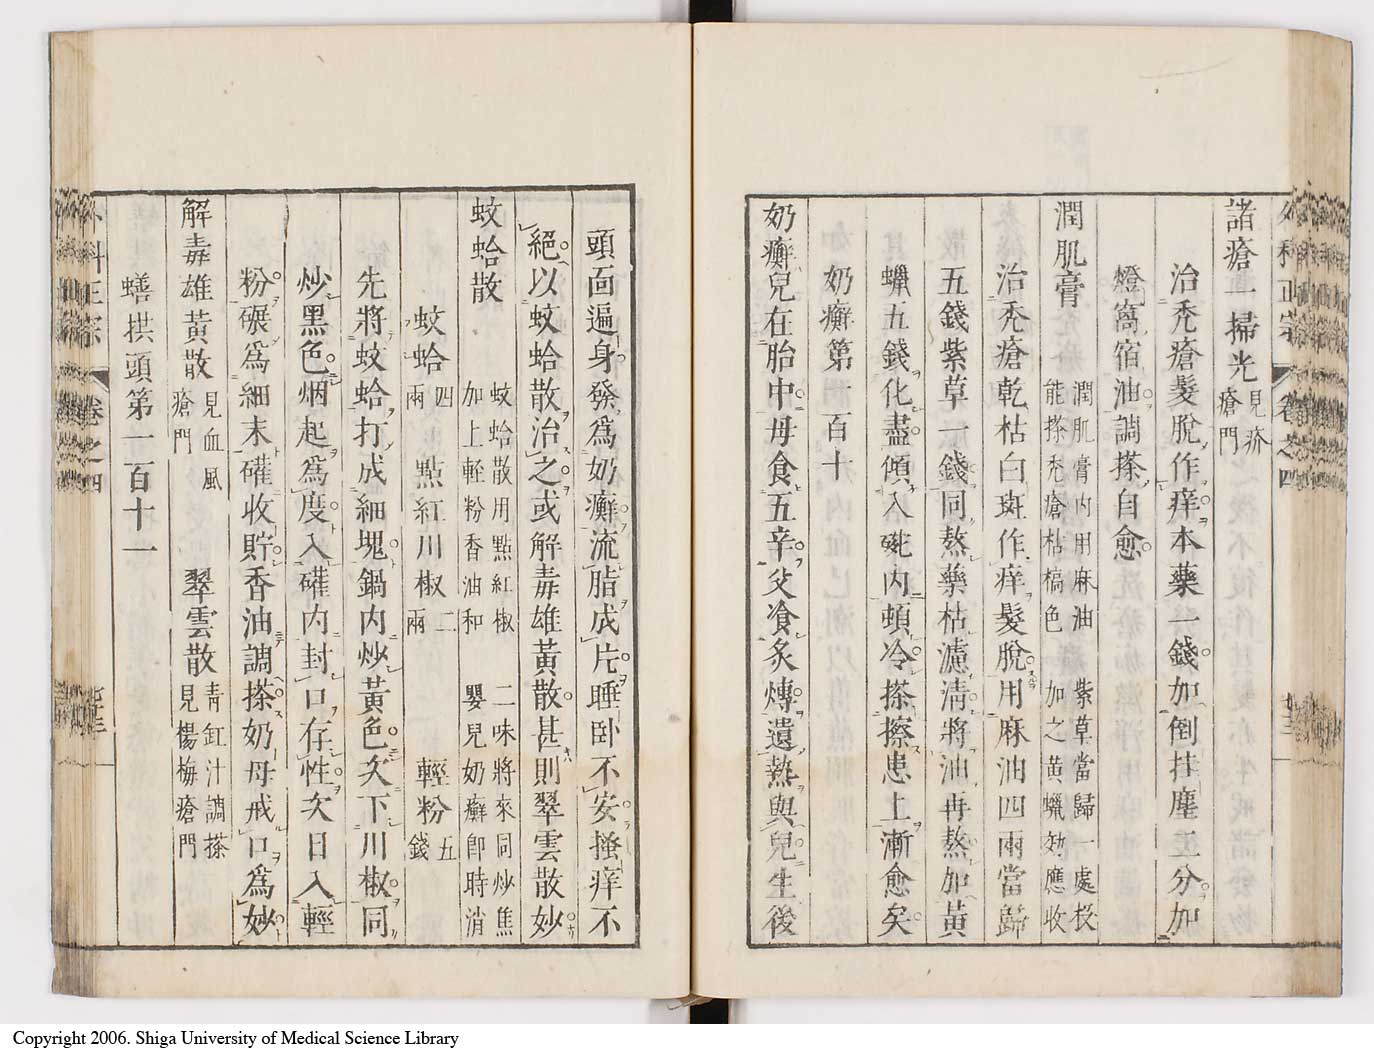 諸瘡一掃光見疥瘡門
治禿瘡髮脫作痒本藥一錢加倒挂塵二分加
燈窩宿油調搽自愈
潤肌膏潤肌膏內用麻油紫草當歸一處投能搽禿瘡枯槁色加之黃蠟効應收
治禿瘡乾枯白斑作痒髮脫用麻油四兩當歸
五錢紫草一錢同熬藥枯濾清將油再熬加黃
蠟五錢化盡傾入碗內頓冷搽擦患上漸愈矣
奶癬第一百十
奶癬兒在胎中母食五辛父飡炙煿遺熱與兒生後
頭面遍身發為奶癬流脂成片睡臥不安搔痒不
絕以蚊蛤散治之或解毒雄黃散甚則翠雲散妙
蚊蛤散蚊蛤散用點紅椒二味將來同炒焦加上輕粉香油和嬰兒奶癬即時消
蚊蛤四兩點紅川椒二兩輕粉五錢
先將蚊蛤打成細塊鍋內炒黃色次下川椒同
炒黑色烟起為度入礶內封口存性次日入輕
粉碾為細末礶收貯香油調搽奶母戒口為妙
解毒雄黃散見血風瘡門 翠雲散青缸汁調搽見楊梅瘡門
蟮拱頭第一百十一
外科正宗 卷之四
Copyright 2006. Shiga University of Medical Science Library